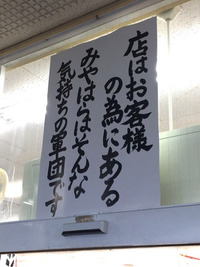 店はお客様
の為にある
みやはらはそんな
気持ちの軍団です